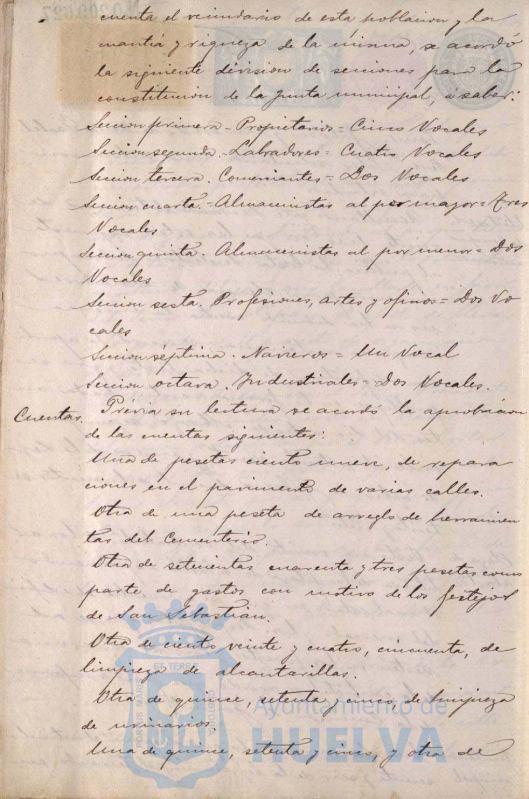 cuenta el vecindario de esta poblacion y la
cuantia y riqueza de la misma, se acordó
la siguiente division de secciones para la
constitucion de la Junta municipal, á saber:
Seccion primera - Propietarios = Cinco Vocales
Seccion segunda. Labradores = Cuatro Vocales
Seccion tercera. Comerciantes = Dos Vocales
Seccion cuarta. = Almacenistas al por mayor = Tres
Vocales
Seccion quinta. Almacenistas al por menor = Dos
Vocales
Seccion sexta. Profesiones, artes y oficios = Dos Vo
cales
Seccion séptima. Navieros = Un Vocal
Seccion octava. Industriales = Dos Vocales.
Cuentas. Prévia su lectura se acordó la aprobacion
de las cuentas siguientes:
Una de pesetas ciento nueve, de repara
ciones en el pavimento de varias calles.
Otra de una peseta de arreglo de herramien
tas del Cementerio.
Otra de setecientas cuarenta y tres pesetas como
parte de gastos con motivo de los festejos
de San Sebastian.
Otra de ciento veinte y cuatro, cincuenta, de
limpieza de alcantarillas.
Otra de quince, setenta y cinco, de limpieza
de urinarios.
Una de quince, setenta y cinco, y otra de
Ayuntamiento de
HUELVA